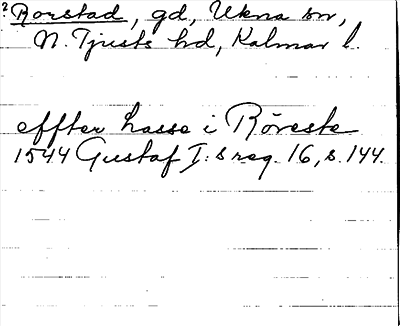 ? Rorstad, gd, Ukna sn,
N. Tjusts hd, Kalmar l.
effter hasse i Röresta
1544 Gustaf I:s reg. 16, s. 144.